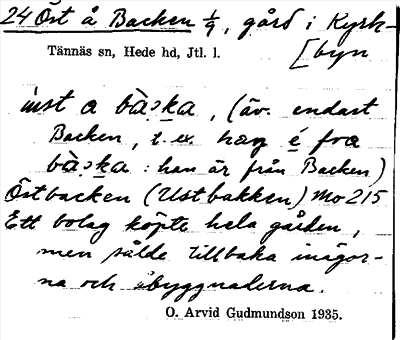 24 Öst å Backen 1/9, gård i Kyrk-
[byn
Tännäs sn, Hede hd, Jtl. l.
a bàɔka, (äv. endast
Backen, t. ex. han é fra
bàɔka : han är från Backen)
Östbacken (Ustbakken) Mo 215
Ett bolag köpte hela gården,
men sålde tillbaka inägor-
na och åbyggnaderna.
O. Arvid Gudmundson 1935.